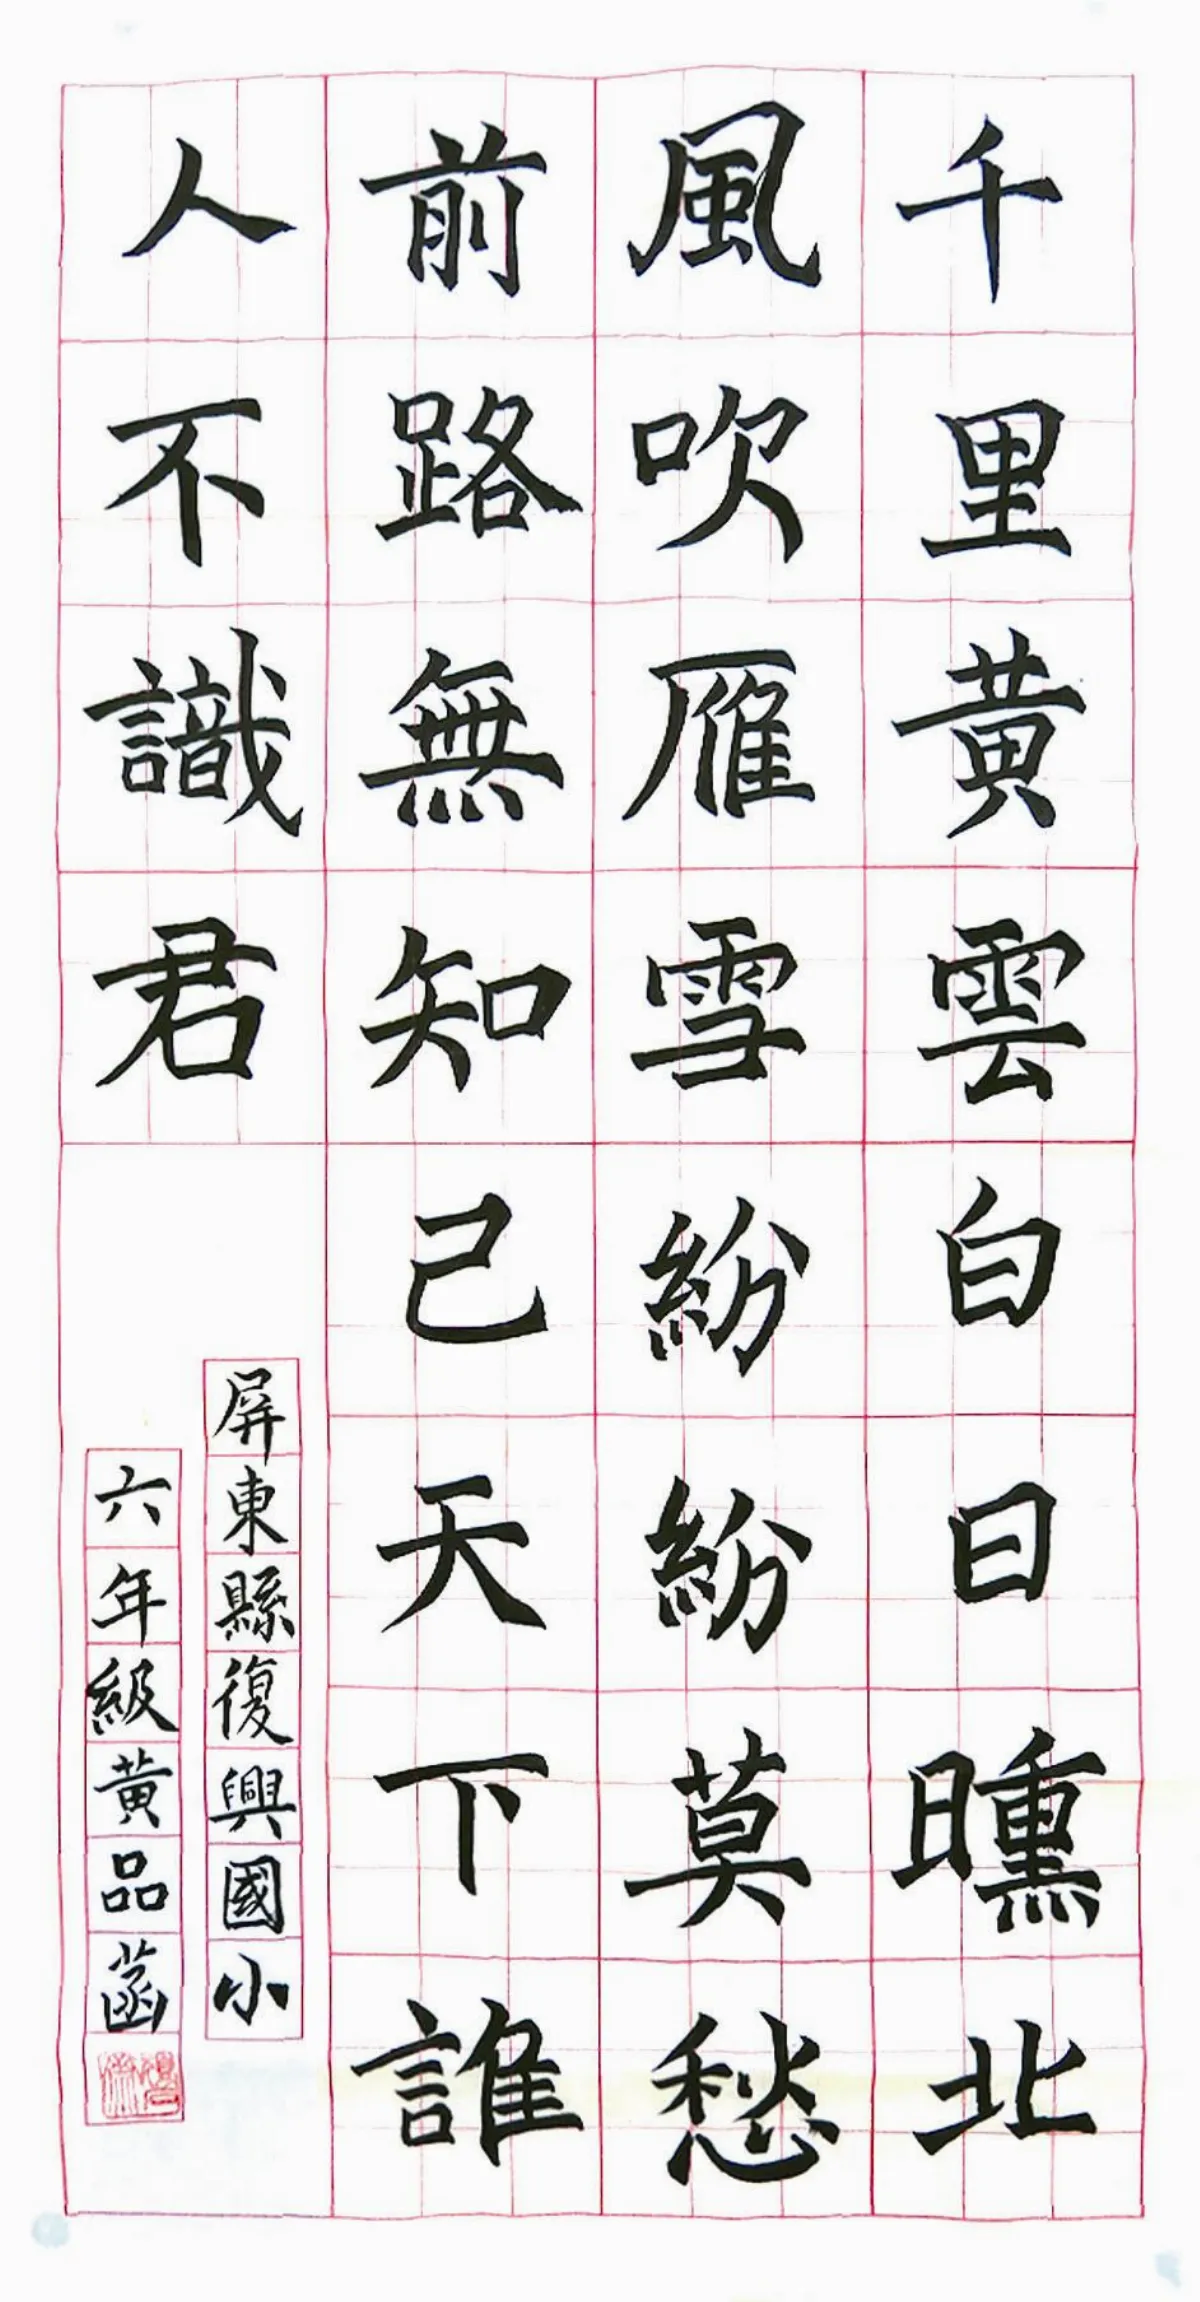 千里黃雲白日曛北
風吹雁雪紛紛莫愁
前路無知己天下誰
人不識君
屏東縣復興國小
六年級黃品菡